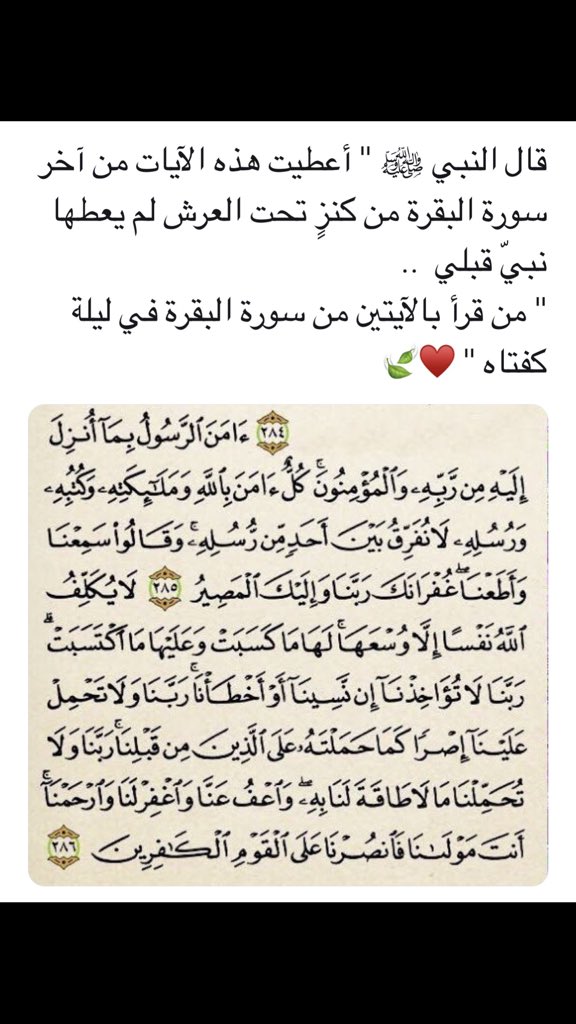 قال النبي ﷺ " أعطيت هذه الآيات من آخر
سورة البقرة من كنزٍ تحت العرش لم يعطها
نبيّ قبلي ..
" من قرأ بالآيتين من سورة البقرة في ليلة
كفتاه " ♥️🍃
٢٨٤ ءَامَنَ ٱلرَّسُولُ بِمَآ أُنزِلَ
إِلَيْهِ مِن رَّبِّهِۦ وَٱلْمُؤْمِنُونَۚ كُلٌّ ءَامَنَ بِٱللَّهِ وَمَلَـٰٓئِكَتِهِۦ وَكُتُبِهِۦ
وَرُسُلِهِۦ لَا نُفَرِّقُ بَيْنَ أَحَدٍ مِّن رُّسُلِهِۦۚ وَقَالُوا۟ سَمِعْنَا
وَأَطَعْنَاۖ غُفْرَانَكَ رَبَّنَا وَإِلَيْكَ ٱلْمَصِيرُ ٢٨٥ لَا يُكَلِّفُ
ٱللَّهُ نَفْسًا إِلَّا وُسْعَهَاۚ لَهَا مَا كَسَبَتْ وَعَلَيْهَا مَا ٱكْتَسَبَتْۗ
رَبَّنَا لَا تُؤَاخِذْنَآ إِن نَّسِينَآ أَوْ أَخْطَأْنَاۚ رَبَّنَا وَلَا تَحْمِلْ
عَلَيْنَآ إِصْرًا كَمَا حَمَلْتَهُۥ عَلَى ٱلَّذِينَ مِن قَبْلِنَاۚ رَبَّنَا وَلَا
تُحَمِّلْنَا مَا لَا طَاقَةَ لَنَا بِهِۦۖ وَٱعْفُ عَنَّا وَٱغْفِرْ لَنَا وَٱرْحَمْنَآۚ
أَنتَ مَوْلَىٰنَا فَٱنصُرْنَا عَلَى ٱلْقَوْمِ ٱلْكَـٰفِرِينَ ٢٨٦